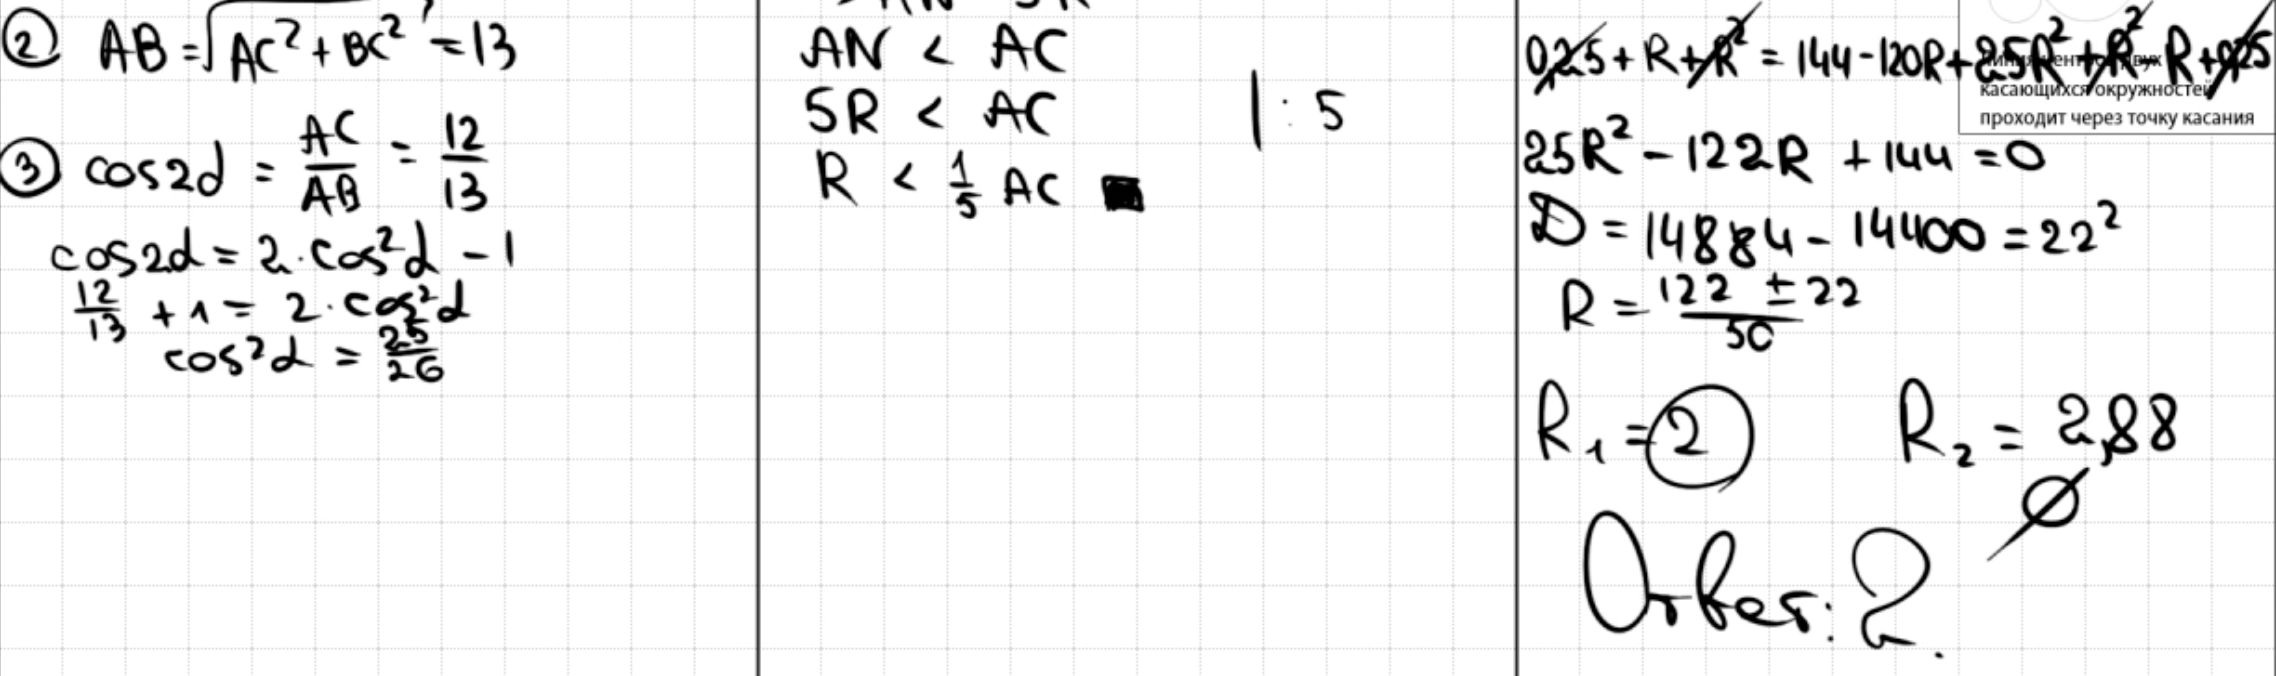 ② AB = √AC² + BC² = 13
③ cos2α = AC/AB = 12/13
cos2α = 2·cos²α - 1
12/13 + 1 = 2·cos²α
cos²α = 25/26
AN < AC
5R < AC | : 5
R < 1/5 AC
0,25 + R + R² = 144 - 120R + 25R² + R² - R + 0,25
касающихся окружностей
проходит через точку касания
25R² - 122R + 144 = 0
D = 14884 - 14400 = 22²
R = 122 ± 22 / 50
R₁ = 2 R₂ = 2,88
∅
Ответ: 2.